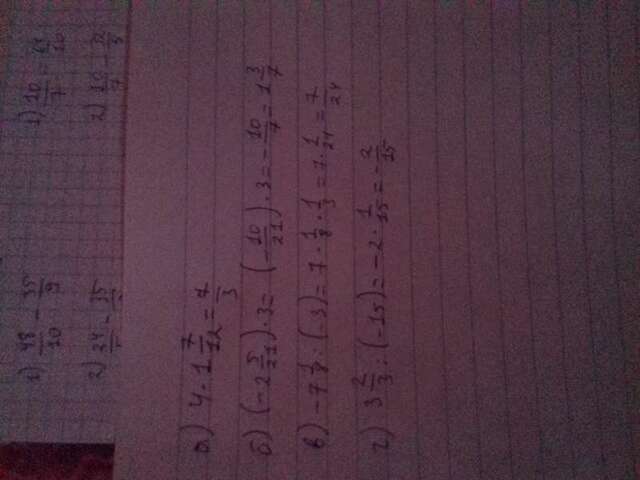 1) 48/10 - 35/9
1) 10/7 -
2) 24/ - 35/
2) 10/7 -
а) 4 · 1 7/12 = 7/3
б) (-2 5/21) · 3 = (-10/21) · 3 = -10/7 = 1 3/7
в) -7 1/8 : (-3) = 7 · 1/8 · 1/3 = 7 · 1/24 = 7/24
г) 3 2/3 : (-15) = -2 · 1/15 = -2/15